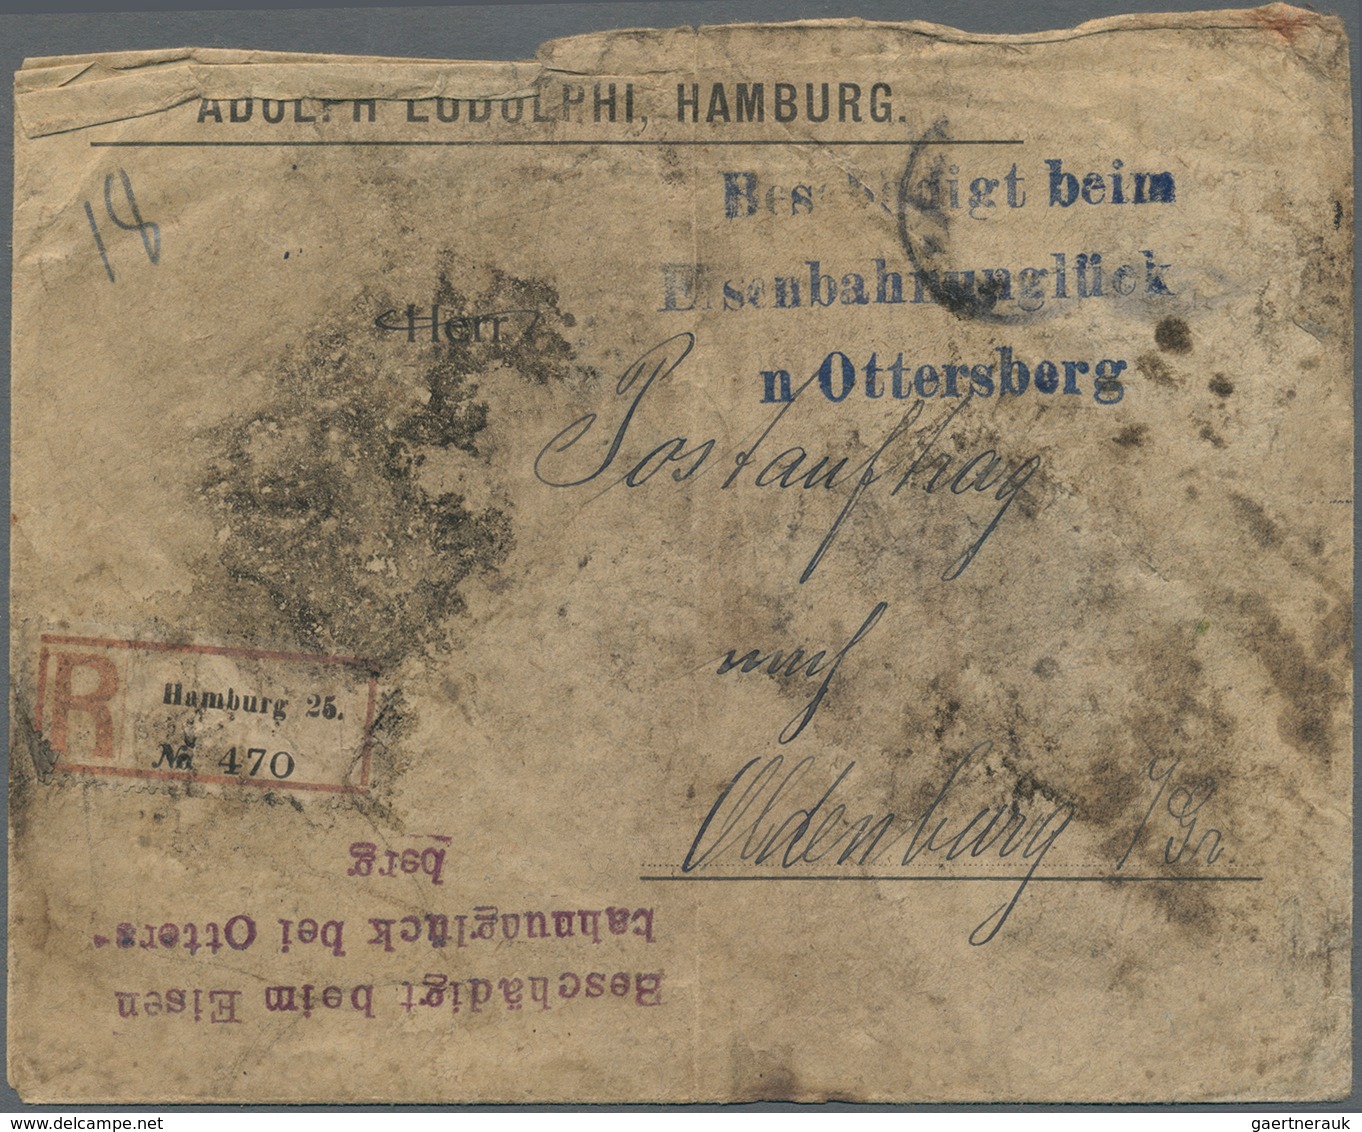 ADOLPH LUDOLPHI, HAMBURG.
18
Beschädigt beim
Eisenbahnunglück
n Ottersberg
Herr
Postauftrag
nach
Oldenburg i/Gr.
R
Hamburg 25.
№ 470
Beschädigt beim Eisen
bahnunglück bei Otters-
berg
gaertnerauk